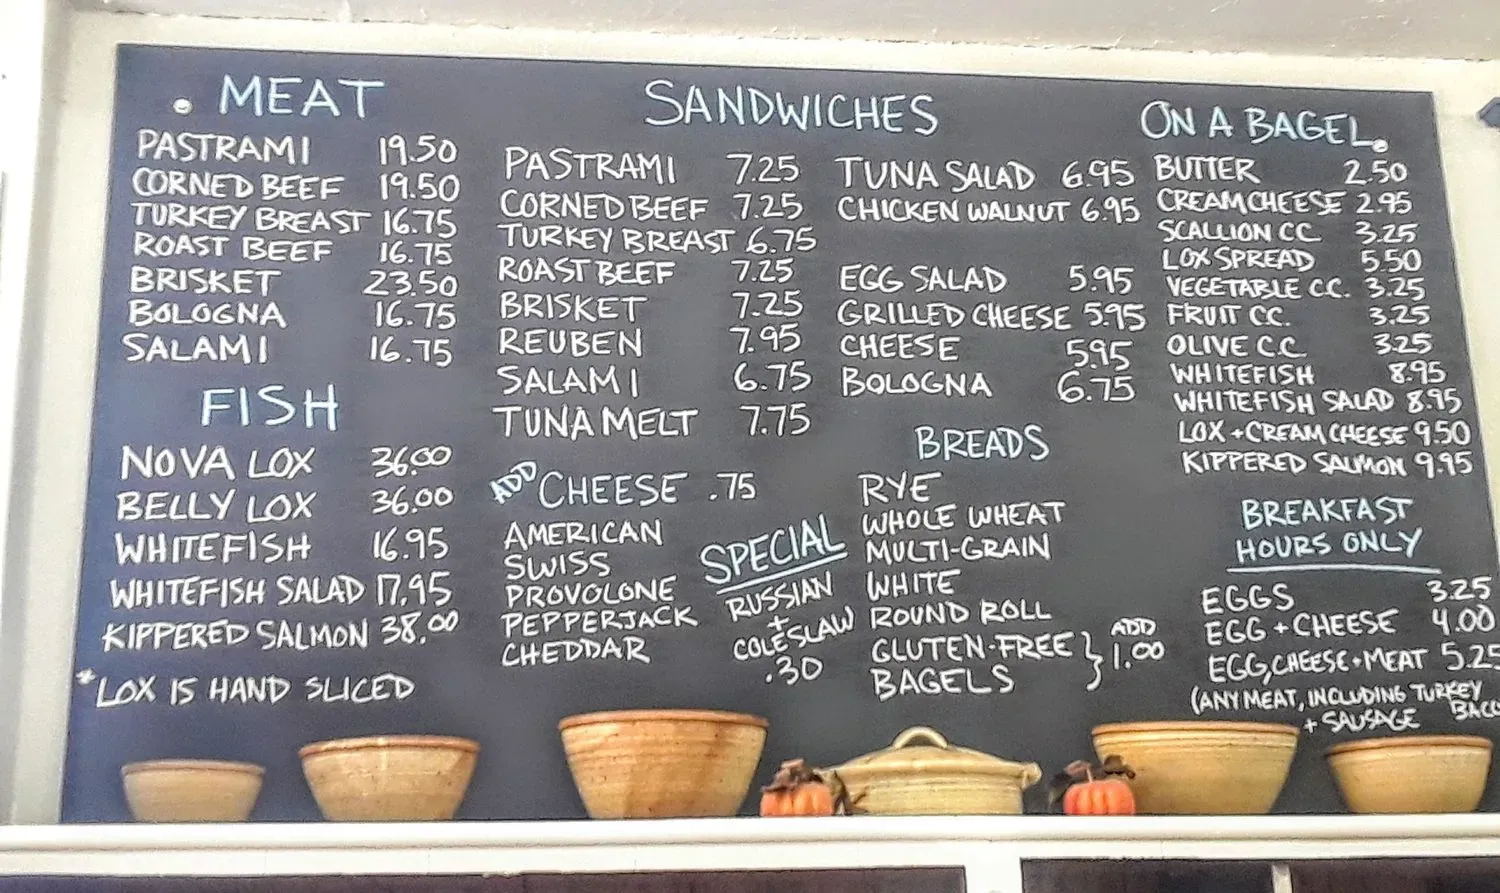 MEAT
PASTRAMI 19.50
CORNED BEEF 19.50
TURKEY BREAST 16.75
ROAST BEEF 16.75
BRISKET 23.50
BOLOGNA 16.75
SALAMI 16.75
FISH
NOVA LOX 36.00
BELLY LOX 36.00
WHITEFISH 16.95
WHITEFISH SALAD 17.95
KIPPERED SALMON 38.00
*LOX IS HAND SLICED
SANDWICHES
PASTRAMI 7.25
CORNED BEEF 7.25
TURKEY BREAST 6.75
ROAST BEEF 7.25
BRISKET 7.25
REUBEN 7.95
SALAMI 6.75
TUNA MELT 7.75
ADD CHEESE .75
AMERICAN
SWISS
PROVOLONE
PEPPERJACK
CHEDDAR
SPECIAL
RUSSIAN
+
COLESLAW
.30
TUNA SALAD 6.95
CHICKEN WALNUT 6.95
EGG SALAD 5.95
GRILLED CHEESE 5.95
CHEESE 5.95
BOLOGNA 6.75
BREADS
RYE
WHOLE WHEAT
MULTI-GRAIN
WHITE
ROUND ROLL
GLUTEN-FREE } ADD
BAGELS 1.00
ON A BAGEL
BUTTER 2.50
CREAM CHEESE 2.95
SCALLION CC 3.25
LOX SPREAD 5.50
VEGETABLE C.C. 3.25
FRUIT CC. 3.25
OLIVE C.C. 3.25
WHITEFISH 8.95
WHITEFISH SALAD 8.95
LOX + CREAM CHEESE 9.50
KIPPERED SALMON 9.95
BREAKFAST
HOURS ONLY
EGGS 3.25
EGG + CHEESE 4.00
EGG, CHEESE + MEAT 5.25
(ANY MEAT, INCLUDING TURKEY
+ SAUSAGE BACO